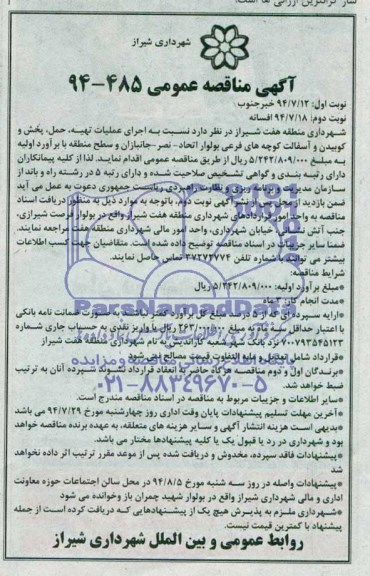 شهرداری شیراز
آگهی مناقصه عمومی ۴۸۵-۹۴
نوبت اول: ۹۴/۷/۱۲ خبرجنوب
نوبت دوم: ۹۴/۷/۱۸ افسانه
شهرداری منطقه هفت شیراز در نظر دارد نسبت به اجرای عملیات تهیه، حمل، پخش و
کوبیدن و آسفالت کوچه های فرعی بولوار اتحاد- نصر-جانبازان و سطح منطقه با برآورد اولیه
به مبلغ ۵/۲۴۲/۸۰۹/۰۰۰ ریال از طریق مناقصه عمومی اقدام نماید. لذا از کلیه پیمانکاران
دارای رتبه بندی و گواهی تشخیص صلاحیت شده و دارای رتبه ۵ در رشته راه و باند از
سازمان مدیریت و برنامه ریزی و نظارت راهبردی ریاست جمهوری دعوت به عمل می آید
ضمن بازدید از محل پس از نشر آگهی نوبت دوم، باتوجه به موارد ذیل به منظور دریافت اسناد
مناقصه به واحد امور قراردادهای شهرداری منطقه هفت شیراز واقع در بولوار فرصت شیرازی،
جنب آتش نشانی، خیابان شهرداری، واحد امور مالی شهرداری منطقه هفت مراجعه نمایند.
ضمنا سایر جزییات در اسناد مناقصه توضیح داده شده است. متقاضیان جهت کسب اطلاعات
بیشتر می توانند با شماره تلفن ۳۷۲۷۴۷۷۴ تماس حاصل نمایند.
شرایط مناقصه:
*مبلغ برآورد اولیه: ۵/۲۴۲/۸۰۹/۰۰۰ ریال
*مدت انجام کار: ۲ ماه
*ارایه سپرده ای که از ۵ درصد مبلغ کل برآورد کمتر نباشد به صورت ضمانت نامه بانکی
با اعتبار حداقل سه ماه به مبلغ ریال یا واریز نقدی به حساب جاری شماره
۷۰۰۷۹۳۵۴۵۱۲۳ نزد بانک شهر شعبه کارآندیش به نام شهرداری منطقه هفت شیراز
*قرارداد شامل تعدیل و مابه التفاوت قیمت مصالح نمی شود
*برندگان اول و دوم مناقصه هرگاه حاضر به انعقاد قرارداد نشوند سپرده آنان به ترتیب
ضبط خواهد شد.
*سایر اطلاعات و جزییات مربوط به مناقصه در اسناد مناقصه مندرج است.
*آخرین مهلت تسلیم پیشنهادات پایان وقت اداری روز چهارشنبه مورخ ۹۴/۷/۲۹ می باشد
*بدیهی است هزینه انتشار آگهی و سایر هزینه های متعلقه، به عهده برنده مناقصه خواهد
بود و شهرداری در رد یا قبول یک یا کلیه پیشنهادها مختار می باشد.
*پیشنهادات فاقد سپرده، مخدوش و دریافت شده پس از موعد مقرر ترتیب اثر داده نخواهد
شد
*پیشنهادات واصله در روز سه شنبه مورخ ۹۴/۸/۵ در محل سالن اجتماعات حوزه معاونت
اداری و مالی شهرداری شیراز واقع در بولوار شهید چمران باز وخوانده می شود
*شهرداری ملزم به پذیرش هیچ یک از پیشنهادهایی که دریافت کرده است از جمله
پیشنهاد با کمترین قیمت نیست.
روابط عمومی و بین الملل شهرداری شیراز
ParsNamadData
پایگاه اطلاع رسانی مناقصه و مزایده
۰۲۱-۸۸۳۴۹۶۷۰-۵